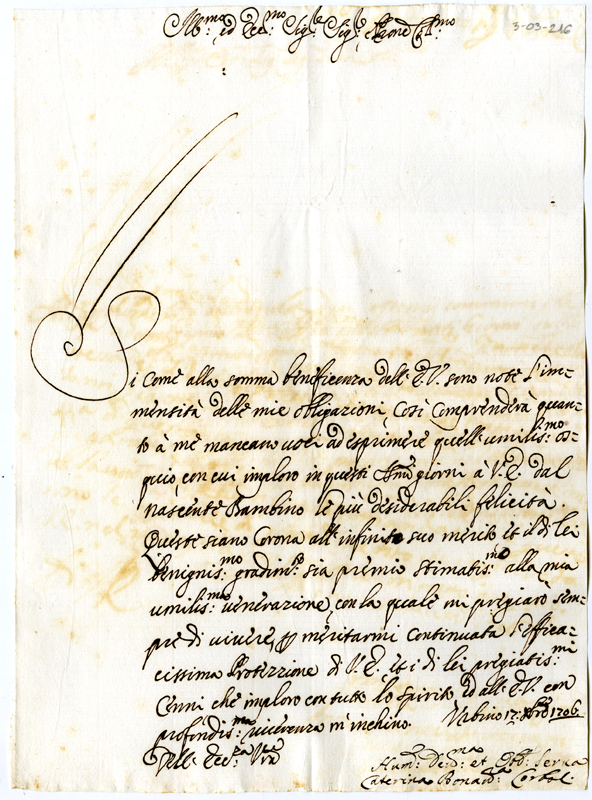 Ill:mo ed Ecc:mo Sig:e Sig:e Prone Col:mo
3-03-216
Si come alla somma beneficenza dell'E.V. sono note l'im=
mensità delle mie obligazioni, Così Comprenderà quan=
to à me mancano voci ad esprimere quell'umilis:mo os=
quio, con cui imploro in questi Smi giorni à V.E. dal
nascente Bambino le più desiderabili felicità.
Queste siano Corona all'infinito suo merito et il di lei
benignis:mo gradim:to sia premio stimatis:mo alla mia
umilis:ma venerazione, con la quale mi pregiarò sem=
pre di vivere, per meritarmi continuata l'effica=
cissima Protezzione di V.E. et i di lei pregiatis:mi
Cenni che imploro con tutto lo spirito ed all'E.V. con
profondis:ma riverenza m'inchino. Urbino 17: Xbre 1706
Dell'Ecc:za Vra
Hum:ma De:ma et Obb: serva
Caterina Bonav:ra Corbol: